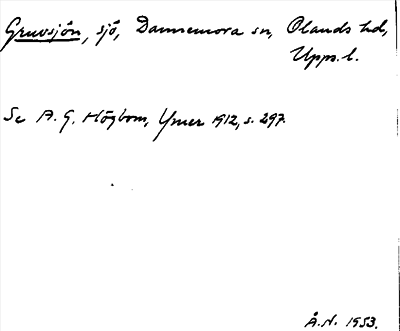 Gruvsjön, sjö, Dannemora sn, Olands hd,
Upps. l.
Se A. G. Högbom, Ymer 1912, s. 297.
Å. N. 1953.